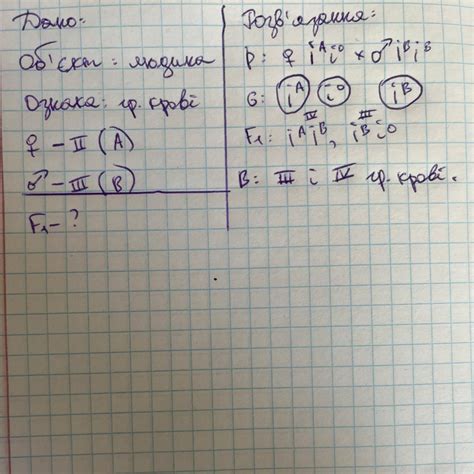 Дано:
Об'єкт: людина
Ознака: гр. крові
♀ – II (A)
♂ – III (B)
F₁ – ?
Розв'язання:
P: ♀ i^A i^o × ♂ i^B i^B
G: i^A i^o i^B
IV III
F₁: i^A i^B, i^B i^o
В: III і IV гр. крові.